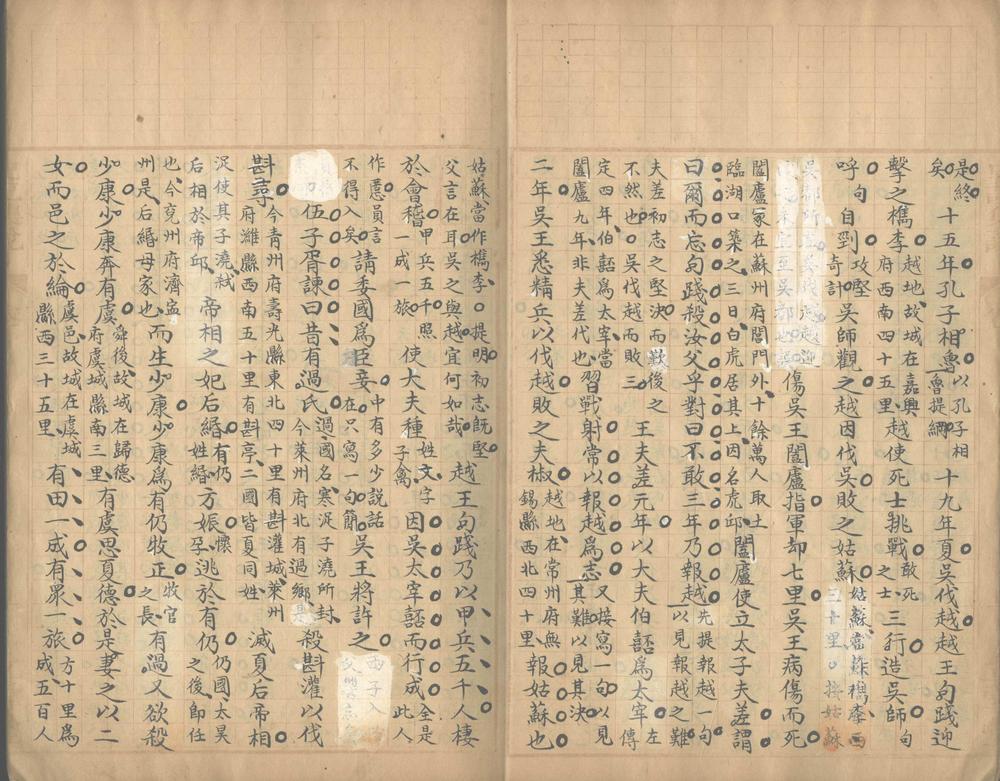 是終矣十五年孔子相魯以孔子相魯提綱十九年夏吳伐越越王句踐迎
擊之檇李越地故城在嘉興府西南四十五里越使死士挑戰敢死之士三行造吳師句
呼句自剄攻堅奇計吳師觀之越因伐吳敗之姑蘇姑蘇當作檇李西三十里○按姑蘇
傷吳王闔廬指軍却七里吳王病傷而死
闔廬冢在蘇州府閶門外十餘萬人取土臨湖口築之三日白虎居其上因名虎邱闔廬使立太子夫差謂
曰爾而忘句踐殺汝父乎對曰不敢三年乃報越先提報越一句以見報越之難
夫差初志之堅決而歎後之不然也○吳伐越而敗三王夫差元年以大夫伯嚭爲太宰左傳
定四年伯嚭爲太宰當闔廬九年非夫差代也習戰射常以報越爲志又接寫一句以見其難以見其決
二年吳王悉精兵以伐越敗之夫椒越地在常州府無錫縣西北四十里報姑蘇也
姑蘇當作檇李○提明初志既堅父言在耳吳之與越宜何如哉越王句踐乃以甲兵五千人棲
於會稽甲兵五千照一成一旅使大夫種姓文字子禽因吳太宰嚭而行成全是此人
作慝員言不得入矣請委國爲臣妾中有多少説話在只寫一句簡吳王將許之西子入
伍子胥諫曰昔有過氏過國名寒浞子澆所封今萊州府北有過鄉是殺斟灌以伐
斟尋今青州府壽光縣東北四十里有斟灌城萊州府濰縣西南五十里有斟亭二國皆夏同姓滅夏后帝相
浞使其子澆弒后相於帝邱帝相之妃后緡有仍姓緡方娠懷孕逃於有仍仍國太昊之後即任
也今兗州府濟寧州是后緡母家也而生少康少康爲有仍牧正牧官之長有過又欲殺
少康少康奔有虞舜後故城在歸德府虞城縣南三里有虞思夏德於是妻之以二
女而邑之於綸虞邑故城在虞城縣西三十五里有田一成有眾一旅方十里爲成五百人